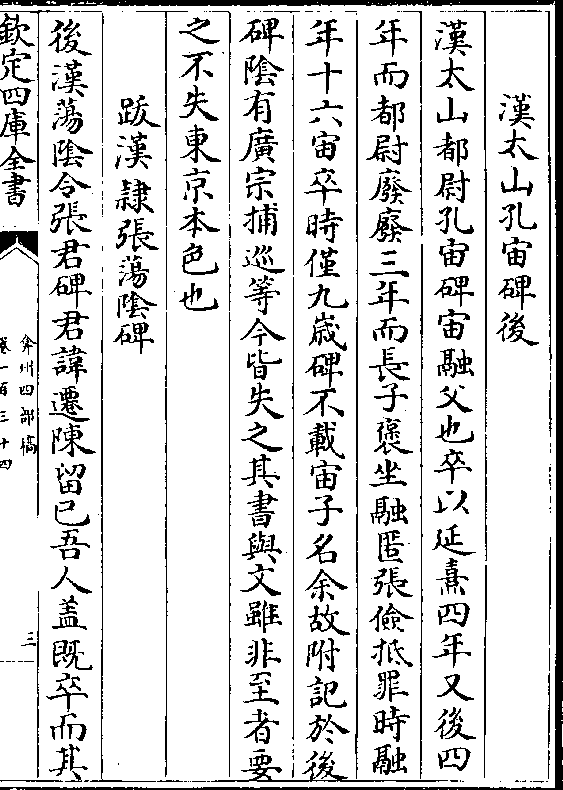 漢太山孔宙碑後
漢太山都尉孔宙碑宙融父也卒以延熹四年又後四
年而都尉廢廢三年而長子褒坐融匿張儉抵罪時融
年十六宙卒時僅九歲碑不載宙子名余故附記於後
碑陰有廣宗捕巡等今皆失之其書與文雖非至者要
之不失東京本色也
跋漢隸張蕩陰碑
後漢蕩陰令張君碑君諱遷陳留已吾人盖既卒而其
欽定四庫全書
弇州四部稿
卷一百三十四
三